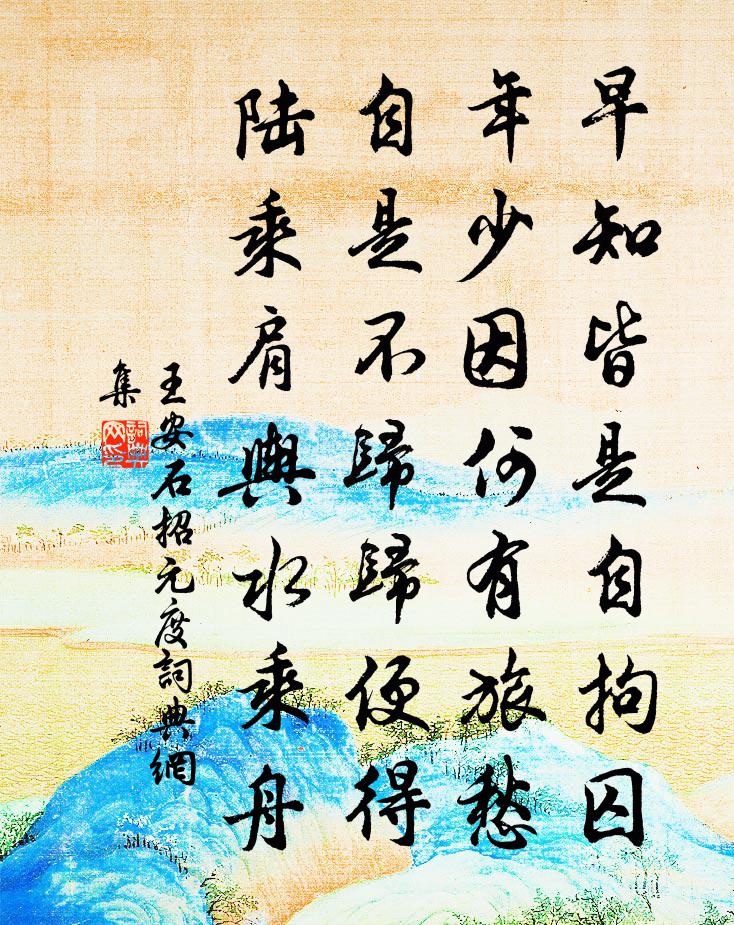 早知皆是自拘囚
年少因何有旅愁
自是不歸歸便得
陆乘肩輿水乘舟
王安石招元度詞典網
集